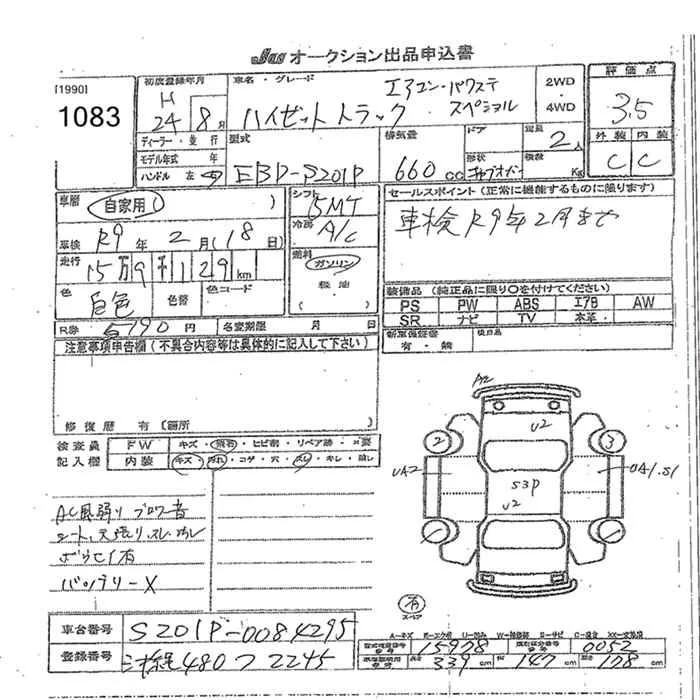 JU オークション出品申込書
[1990]
1083
初度登録年月
H
24年 8月
車名・グレード
ハイゼットトラック
エアコン・パワステ
スペシャル
2WD
・
4WD
評価点
3.5
外装 内装
C C
ディーラー・並行
モデル年式 年
ハンドル 左・右
型式
EBD-S201P
排気量
660 cc
ドア
形状
キャブオーバー
定員
2人
積載
Kg
車歴
自家用 ( )
車検 R9年 2月(18日)
走行
15万9千129km
色
白色
色替
カラーコード
シフト
5MT
冷房
A/C
燃料
ガソリン
軽油
セールスポイント(正常に機能するものに限ります)
車検R9年2月まで
装備品 (純正品に限り○を付けてください)
PS PW ABS エアB AW
SR ナビ TV 本革・
新車保証書
有・無
後日品
R券 5790円 名変期限 月 日
注意事項申告欄 (不具合内容等は具体的に記入して下さい)
修復歴 有 (箇所 )
検査員
記入欄
FW キズ・飛石・ヒビ割・リペア跡・×要
内装 キズ・汚れ・コゲ・穴・スレ・キレ・臭い
AC風弱り ブロワ音
シート,天張り,スレ,汚れ
バッテリーX
A2
U2
2
3
UA2
S3P
U2
UA1.S1
有
スペア
A-キズ E-エクボ U-凹み W-補修跡 S-サビ C-腐食 XX-交換済
車台番号 S201P-0084295
登録番号 480 2245
型式指定番号 15978 類別区分番号 0052
長さ 339cm 幅 147cm 高さ 178cm